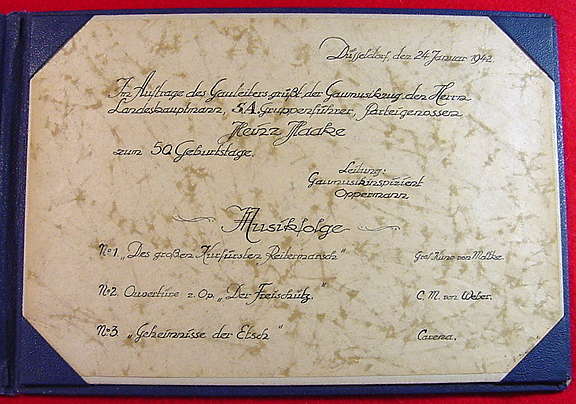 Düsseldorf, den 24. Januar 1942.
Im Auftrage des Gauleiters grüßt der Gaumusikzug den Herrn
Landeshauptmann, S.A. Gruppenführer, Parteigenossen
Heinz Haake
zum 50. Geburtstage.
Leitung:
Gaumusikinspizient
Oppermann
Musikfolge
No 1 „Des großen Kurfürsten Reitermarsch" Graf Kuno von Moltke.
No 2. Ouvertüre z. Op. „Der Freischütz." C. M. von Weber.
No 3 „Geheimnisse der Etsch" Carena.